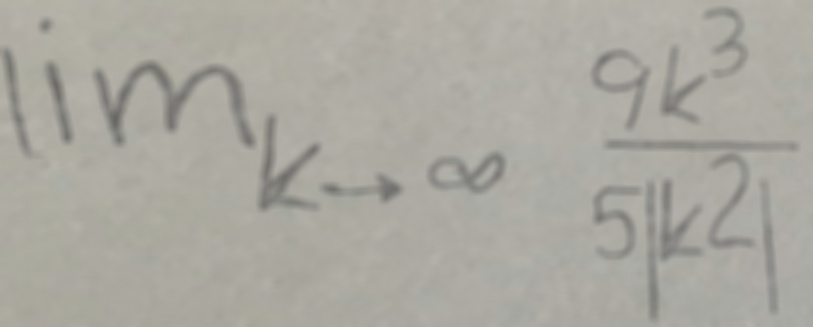 lim_{k→∞} \frac{9k^3}{5|k^2|}